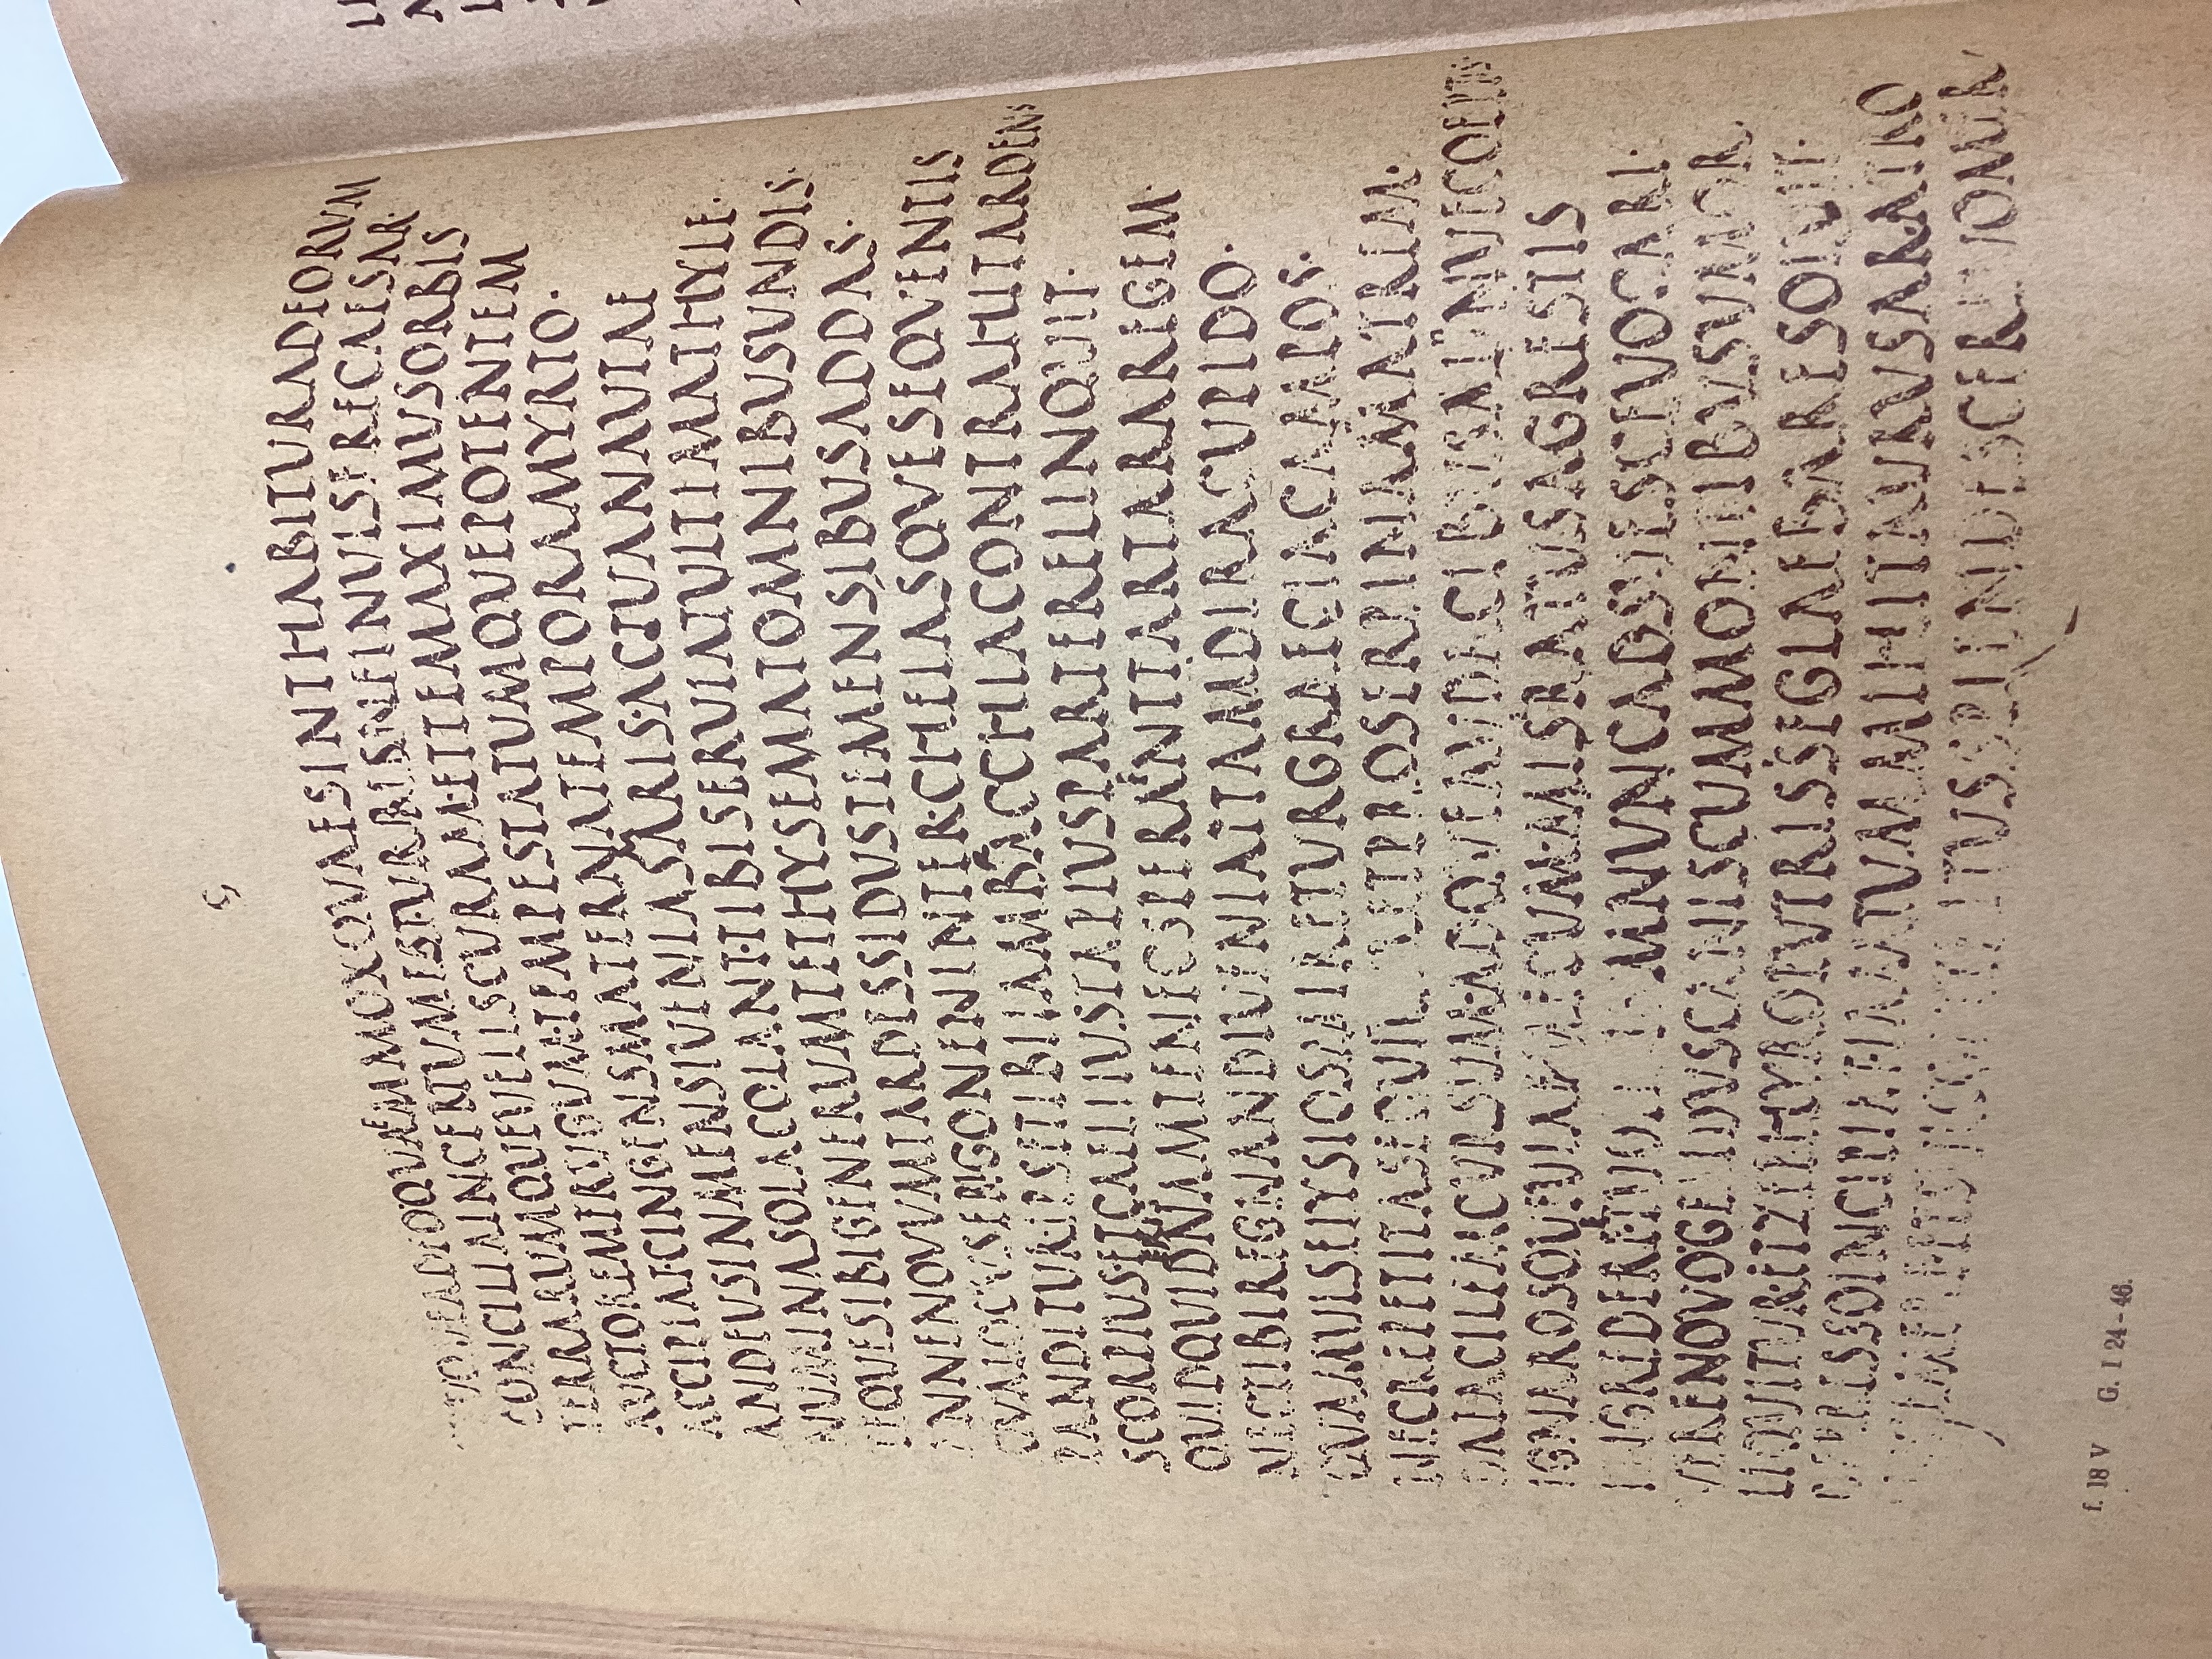 TVQVEADEOQVEMMOXQVAESINTHABITVRADEORVM
CONCILIAINCERTVMESTVRBISNEINVISERECAESAR·
TERRARVMQVEVELISCVRAMETTEMAXIMVSORBIS
AVCTOREMFRVGVMTEMPESTATVMQVEPOTENTEM
ACCIPIATCINGENSMATERNATEMPORAMYRTO·
ANDEVSINMENSIVENIASMARISACTVANAVTAE
NVMINASOLACOLANTTIBISERVIATVLTIMATHYLE·
TEQVESIBIGENERVMTETHYSEMATOMNIBVSVNDIS·
ANNENOVVMTARDISSIDVSTEMENSIBVSADDAS·
QVALOCVSERIGONENINTERCHELASQVESEQVENTIS
PANDITVRIPSETIBIIAMBACCHIACONTRAHITARDENS
SCORPIVSETCAELIIVSTAPLVSPARTERELINQVIT·
QVIDQVIDNAMTENECSPERANTTARTARAREGEM·
NECTIBIREGNANDIVENIATTAMDIRACVPIDO·
QVAMVISELYSIOSMIRETVRGRAECIACAMPOS·
NECREPETITASEQVI PROSERPINAMATREM·
DAFACILEMCVRSVMATQVEAVDACIBVS COEPTIS
IGNAROSQVEVIAEMECVMMISERATVSAGRESTIS
INGREDERE NVNCADSVESCEVOCARI·
VERENOVOGELIDVSCANISCVMMONTIBVSVMOR·
LIQVITVRETZEPHYROPVTRISSEGLAEBARESOLVIT·
DEPRESSOINCIPIATIAMTVMMIHITAVRVSARATRO
INGEMEREETSVLCOATTRITVSSPLENDESCEREVOMER
f. 18 V G. I 24-46.